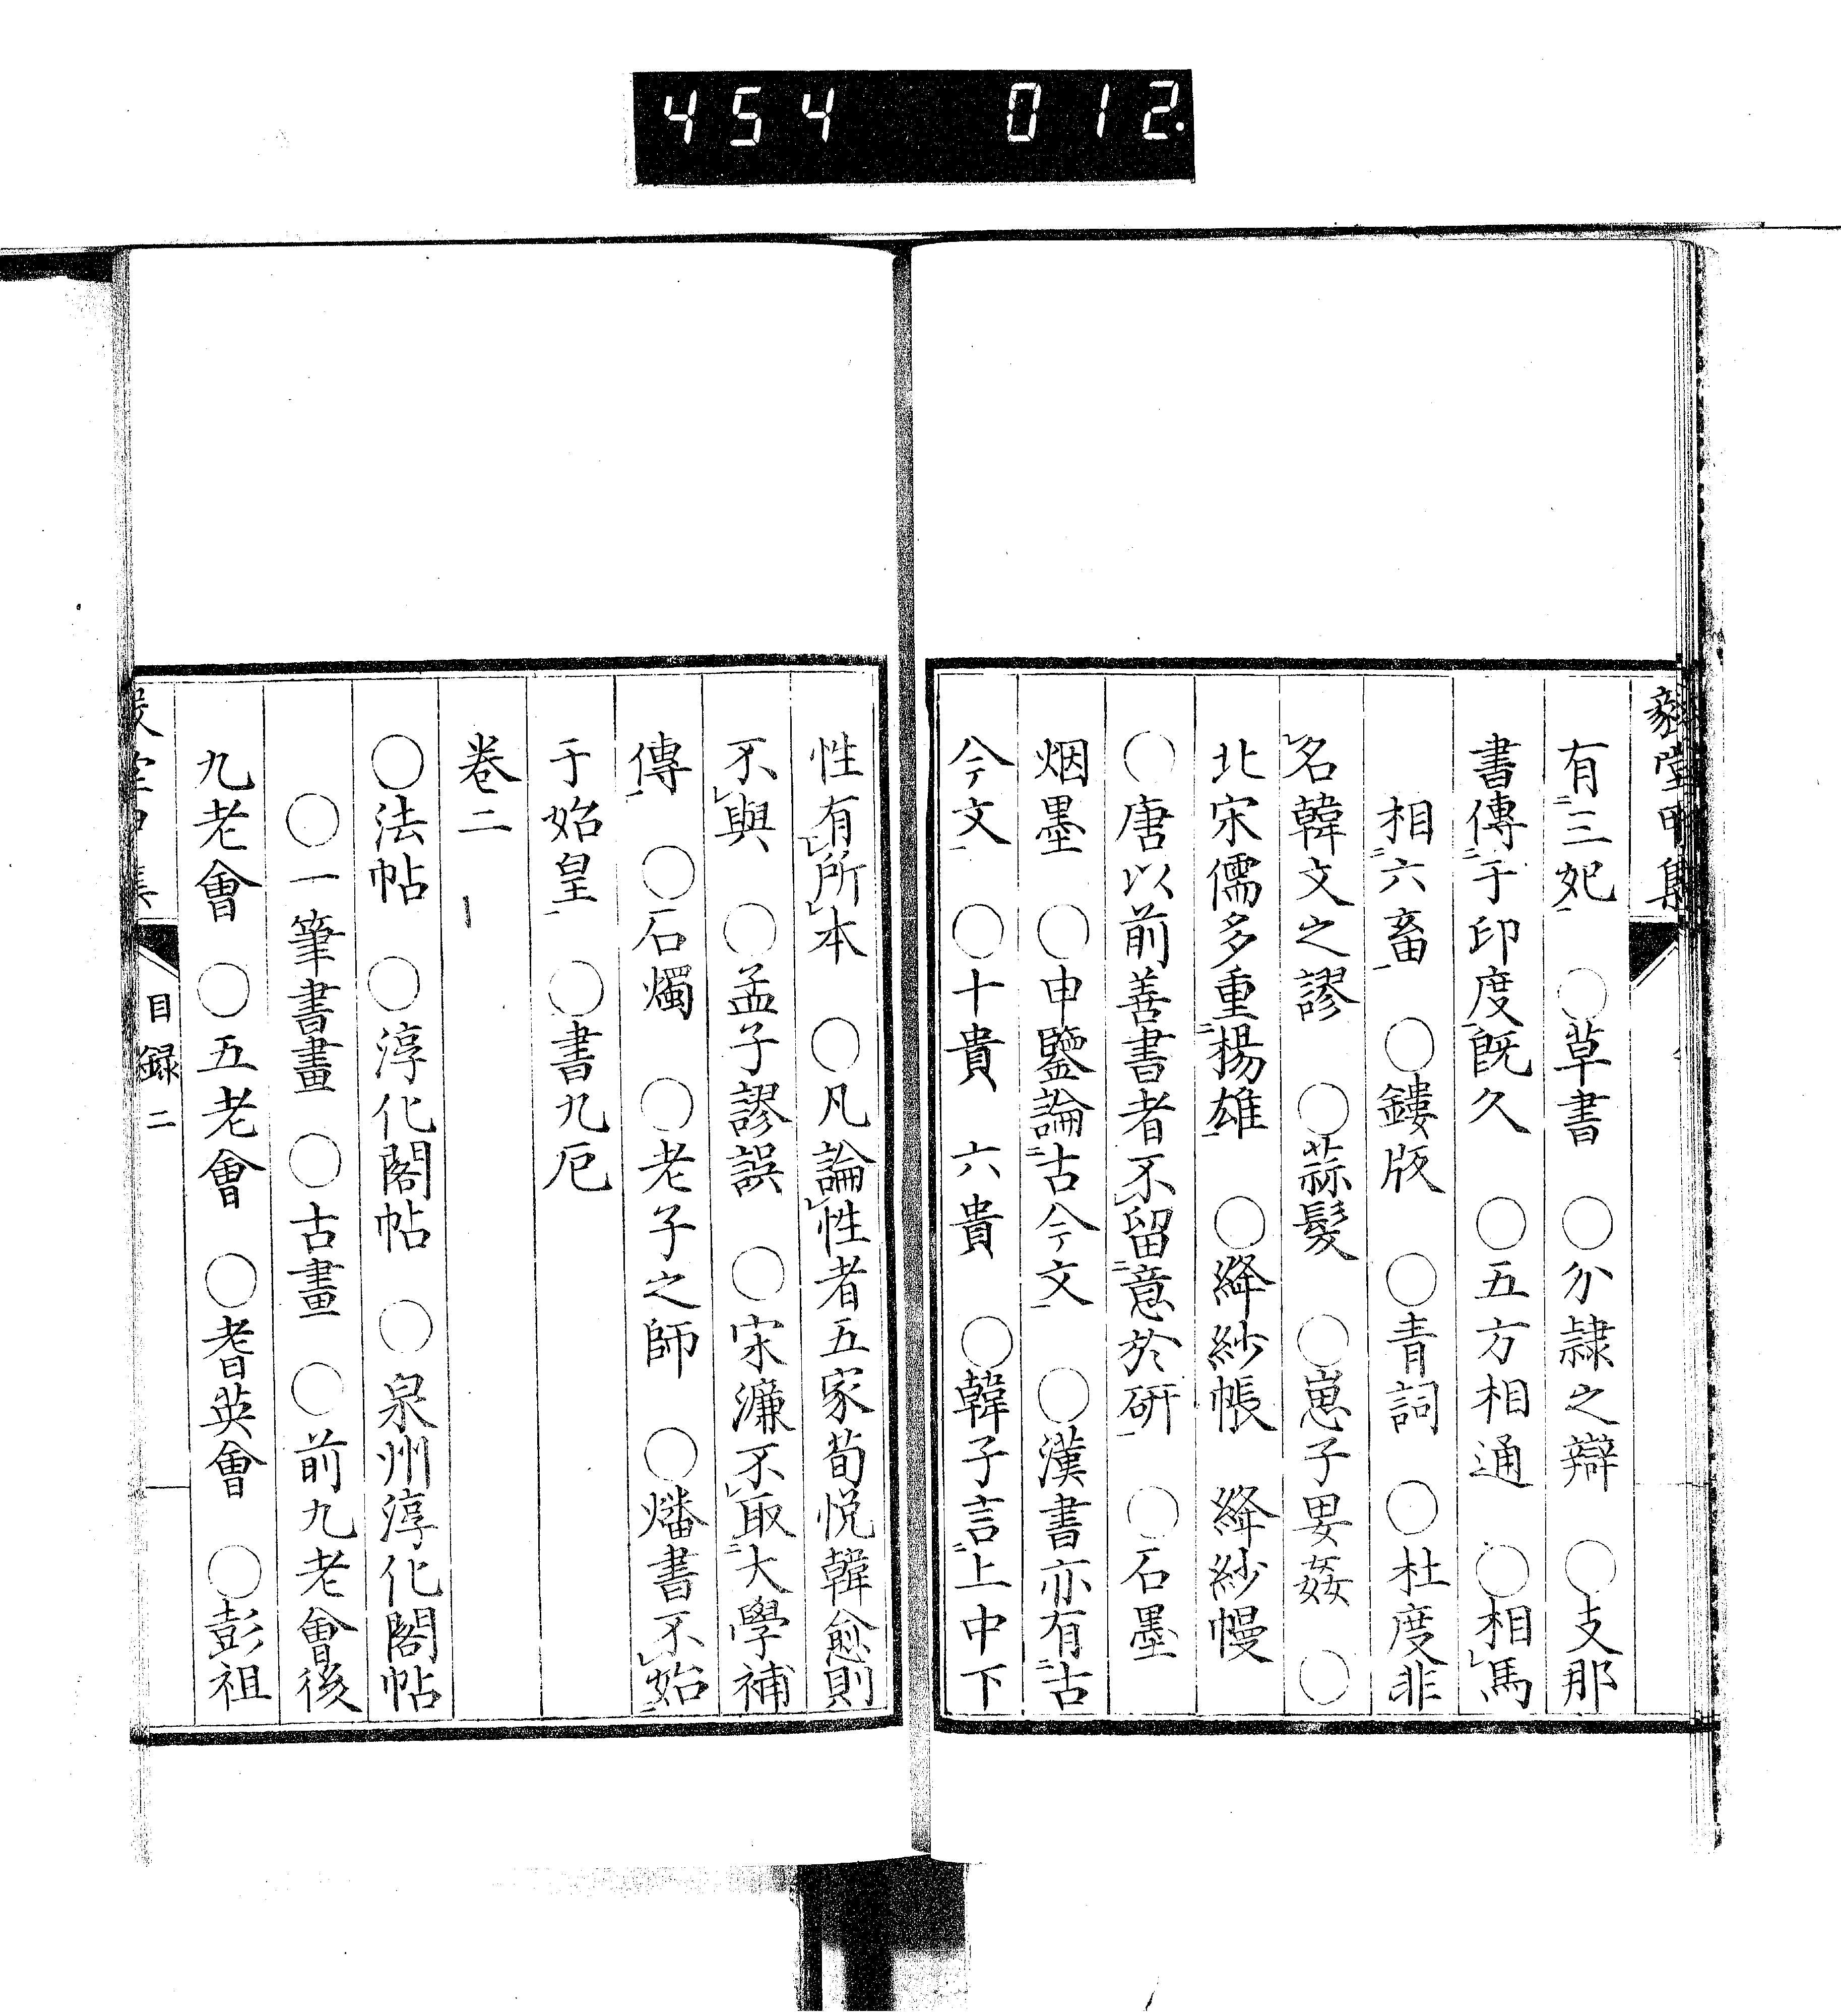 454 012.
有二三妃一 ○草書 ○分隷之辯 ○支那
書傳二于印度一既久 ○五方相通 ○相レ馬
相二六畜一 ○鏤版 ○青詞 ○杜度非
レ名韓文之謬 ○蒜髮 ○崽子姎姦 ○
北宋儒多重二楊雄一 ○絳紗帳 絳紗幔
○唐以前善書者不レ留二意於研一 ○石墨
烟墨 ○申鑒論二古今文一 ○漢書亦有二古
今文一 ○十貴 六貴 ○韓子言二上中下
性有レ所レ本 ○凡論レ性者五家荀悅韓愈則
不レ與 ○孟子謬誤 ○宋濂不レ取二大學補
傳一 ○石燭 ○老子之師 ○燔書不レ始二
于始皇一 ○書九厄
卷二
○法帖 ○淳化閣帖 ○泉州淳化閣帖
○一筆書畫 ○古畫 ○前九老會後
九老會 ○五老會 ○耆英會 ○彭祖
目録 二